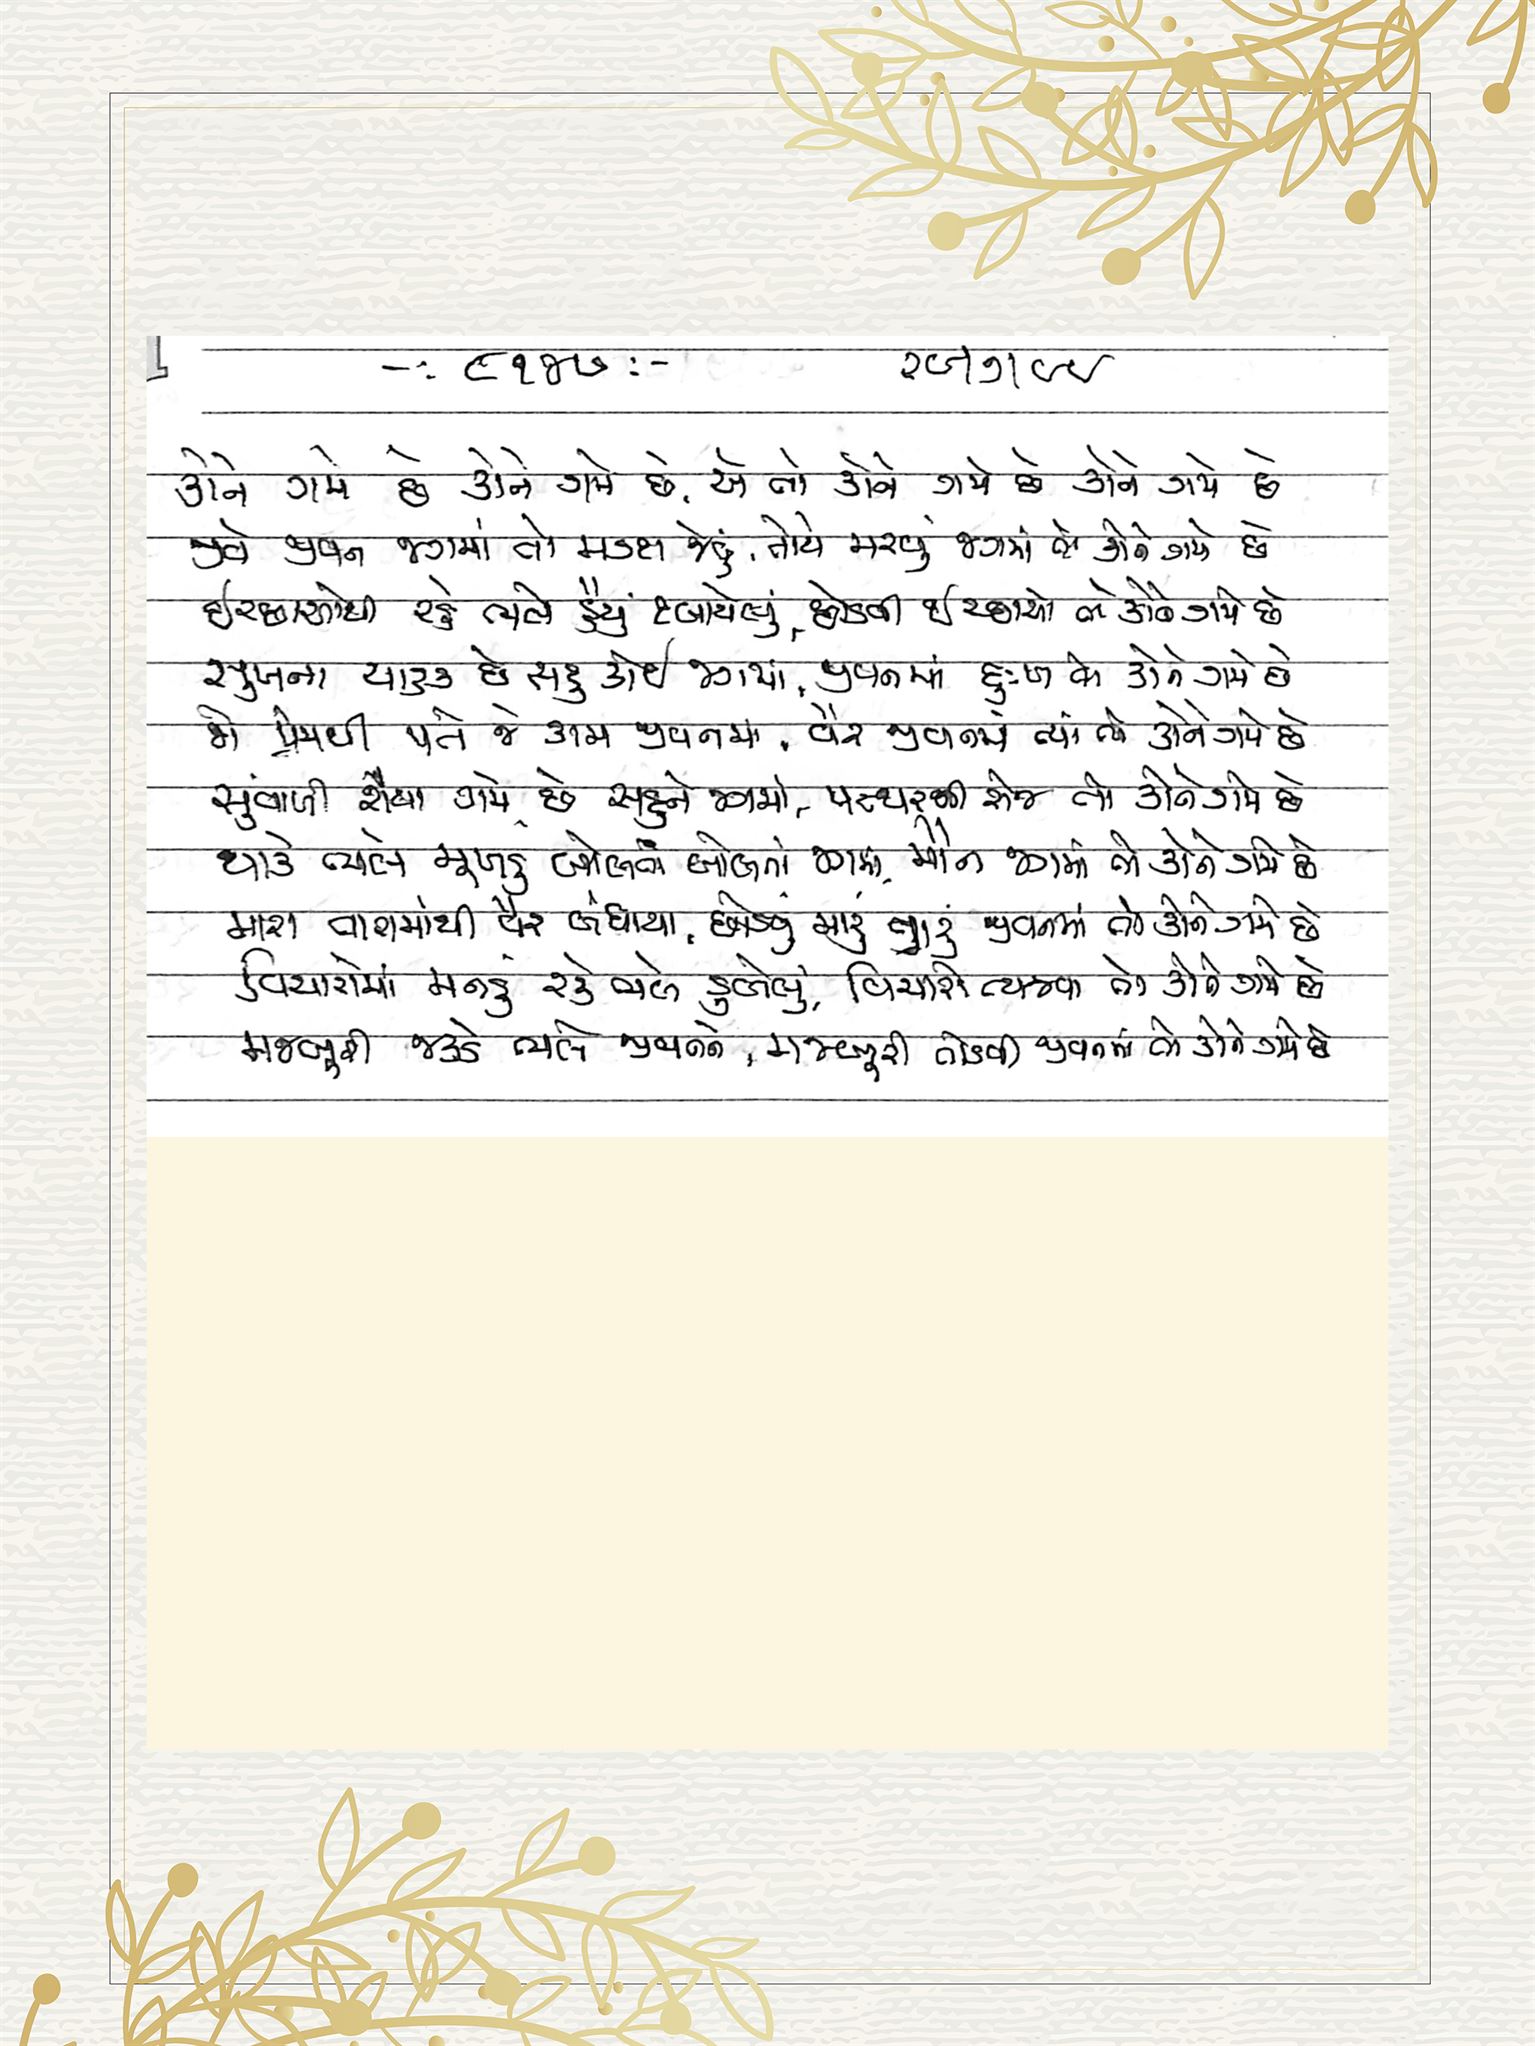 -: ૯૧૪૭ :-
કોને ગમે છે કોને ગમે છે, એ તો કોને ગમે છે કોને ગમે છે
જીવે જીવન જગમાં તો મડદા જેવું, તોયે મરવું જગમાં તો કોને ગમે છે
ઈચ્છાઓથી રહે ભલે હૈયું દબાયેલું, છોડવી ઈચ્છાઓ તો કોને ગમે છે
સુખના ચાહક છે સહુ કોઈ જગમાં, જીવનમાં દુઃખ તો કોને ગમે છે
જો પ્રેમથી પતે જે કામ જીવનમાં, વેર જીવનમાં ત્યાં તો કોને ગમે છે
સુંવાળી શૈયા ગમે છે સહુને જગમાં, પથ્થરની સેજ તો કોને ગમે છે
થાકે ભલે મુખડું બોલતાં બોલતાં જગમાં, મૌન જગમાં તો કોને ગમે છે
મારા તારામાંથી વેર બંધાયા, છોડવું મારું તારું જીવનમાં તો કોને ગમે છે
વિચારોમાં મનડું રહે ભલે ડૂબેલું, વિચારો ત્યજવા તો કોને ગમે છે
મજબૂરી જકડે ભલે જીવનને, મજબૂરી તોડવી જીવનમાં તો કોને ગમે છે